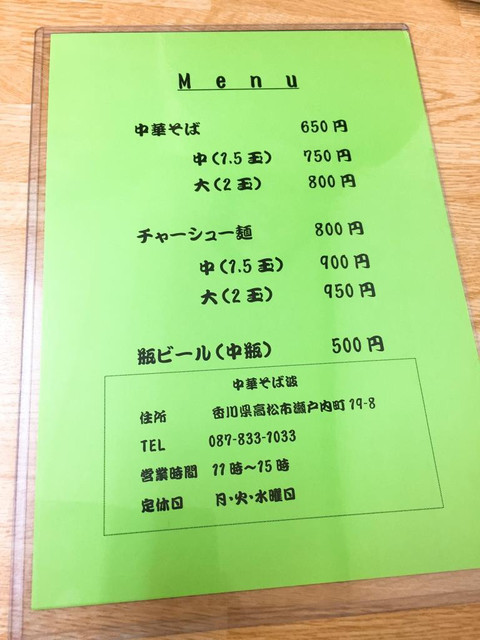 Menu
中華そば 650円
中(1.5玉) 750円
大(2玉) 800円
チャーシュー麺 800円
中(1.5玉) 900円
大(2玉) 950円
瓶ビール(中瓶) 500円
中華そば 波
住所 香川県高松市瀬戸内町19-8
TEL 087-833-1033
営業時間 11時～15時
定休日 月・火・水曜日